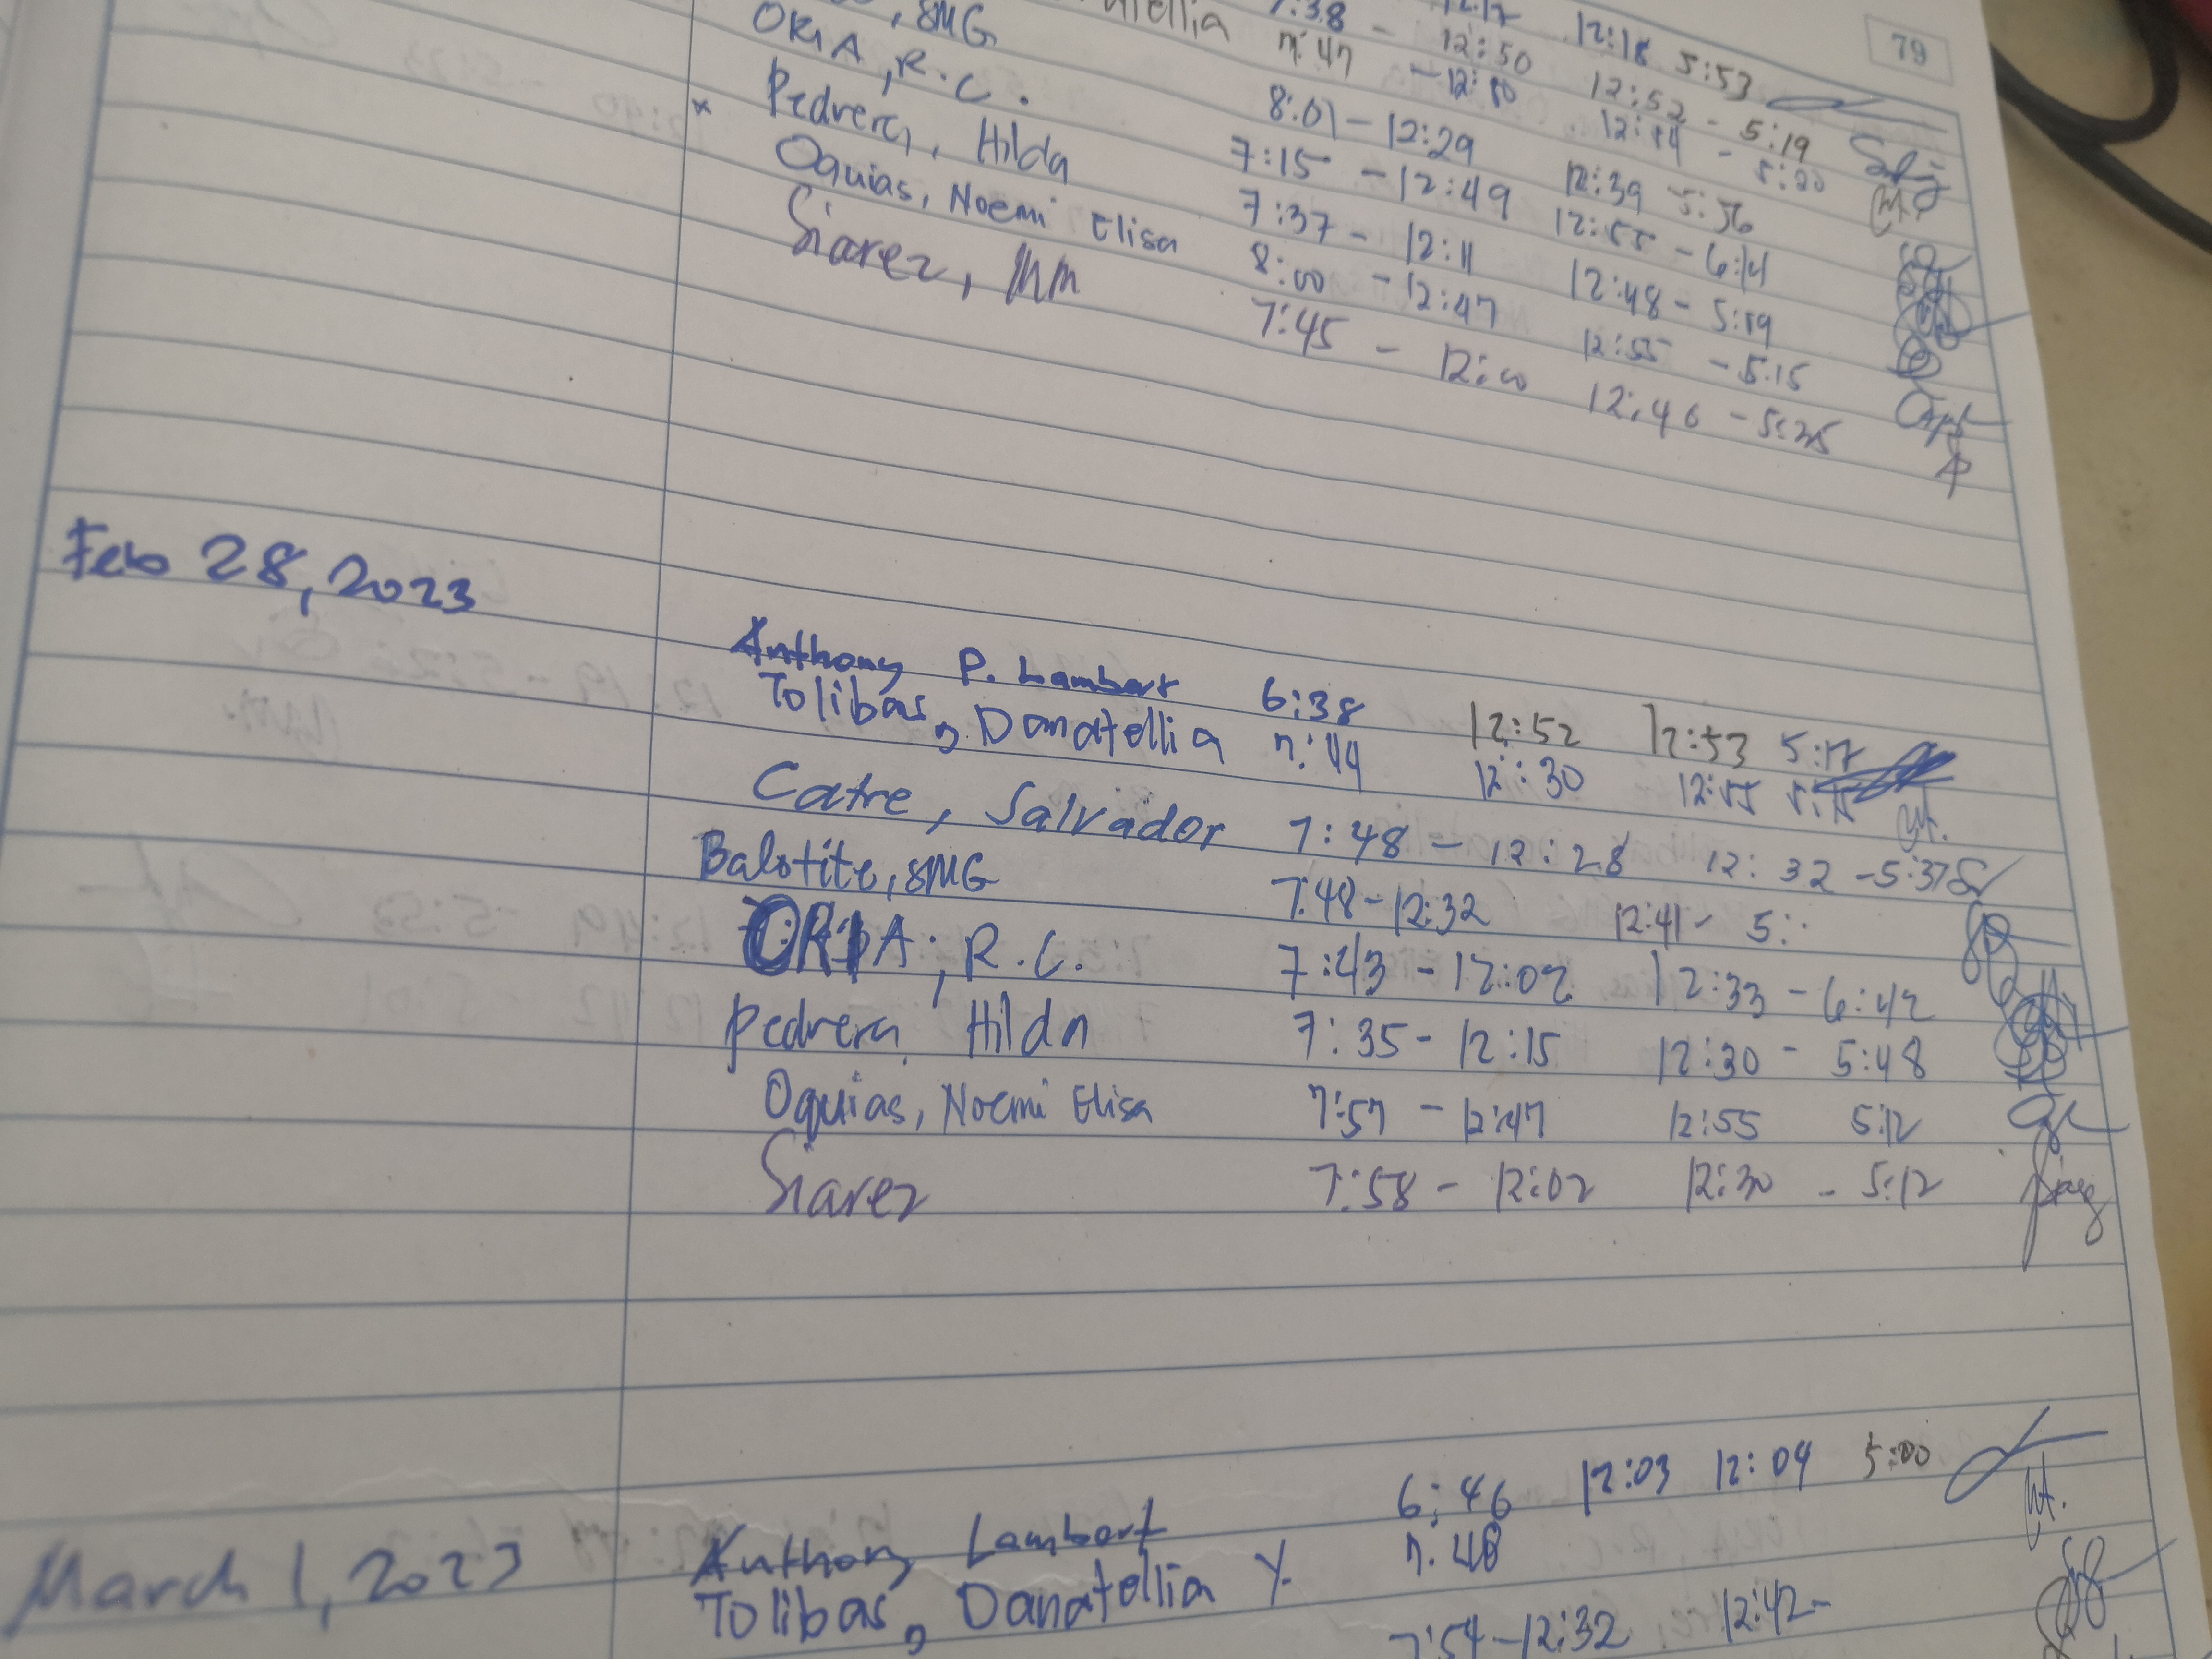 79
7:38 - 12:17 12:18 5:53
7:47 - 12:50 12:52 - 5:19
SMG
ORIA, R.C. 8:01 - 12:29 12:39 5:56
Pedrera, Hilda 7:15 - 12:49 12:55 - 6:14
x Oquias, Noemi Elisa 7:37 - 12:11 12:48 - 5:19
Siarez, MM 8:00 - 12:47 12:55 - 5:15
7:45 - 12:00 12:46 - 5:25
Feb 28, 2023
Anthony P. Lambert 6:38 12:52 12:53 5:17
Tolibas, Danatellia 7:44 12:30 12:55 5:15
Catre, Salvador 7:48 - 12:28 12:32 - 5:37
Balotite, SMG 7:48 - 12:32 12:41 - 5:
ORIA, R.C. 7:43 - 12:02 12:33 - 6:42
Pedrera, Hilda 7:35 - 12:15 12:30 - 5:48
Oquias, Noemi Elisa 7:57 - 12:47 12:55 5:12
Siarez 7:58 - 12:02 12:30 - 5:12
March 1, 2023
Anthony Lambert 6:46 12:03 12:04 5:00
Tolibas, Danatellia Y. 7:48
7:54 - 12:32 12:42 -